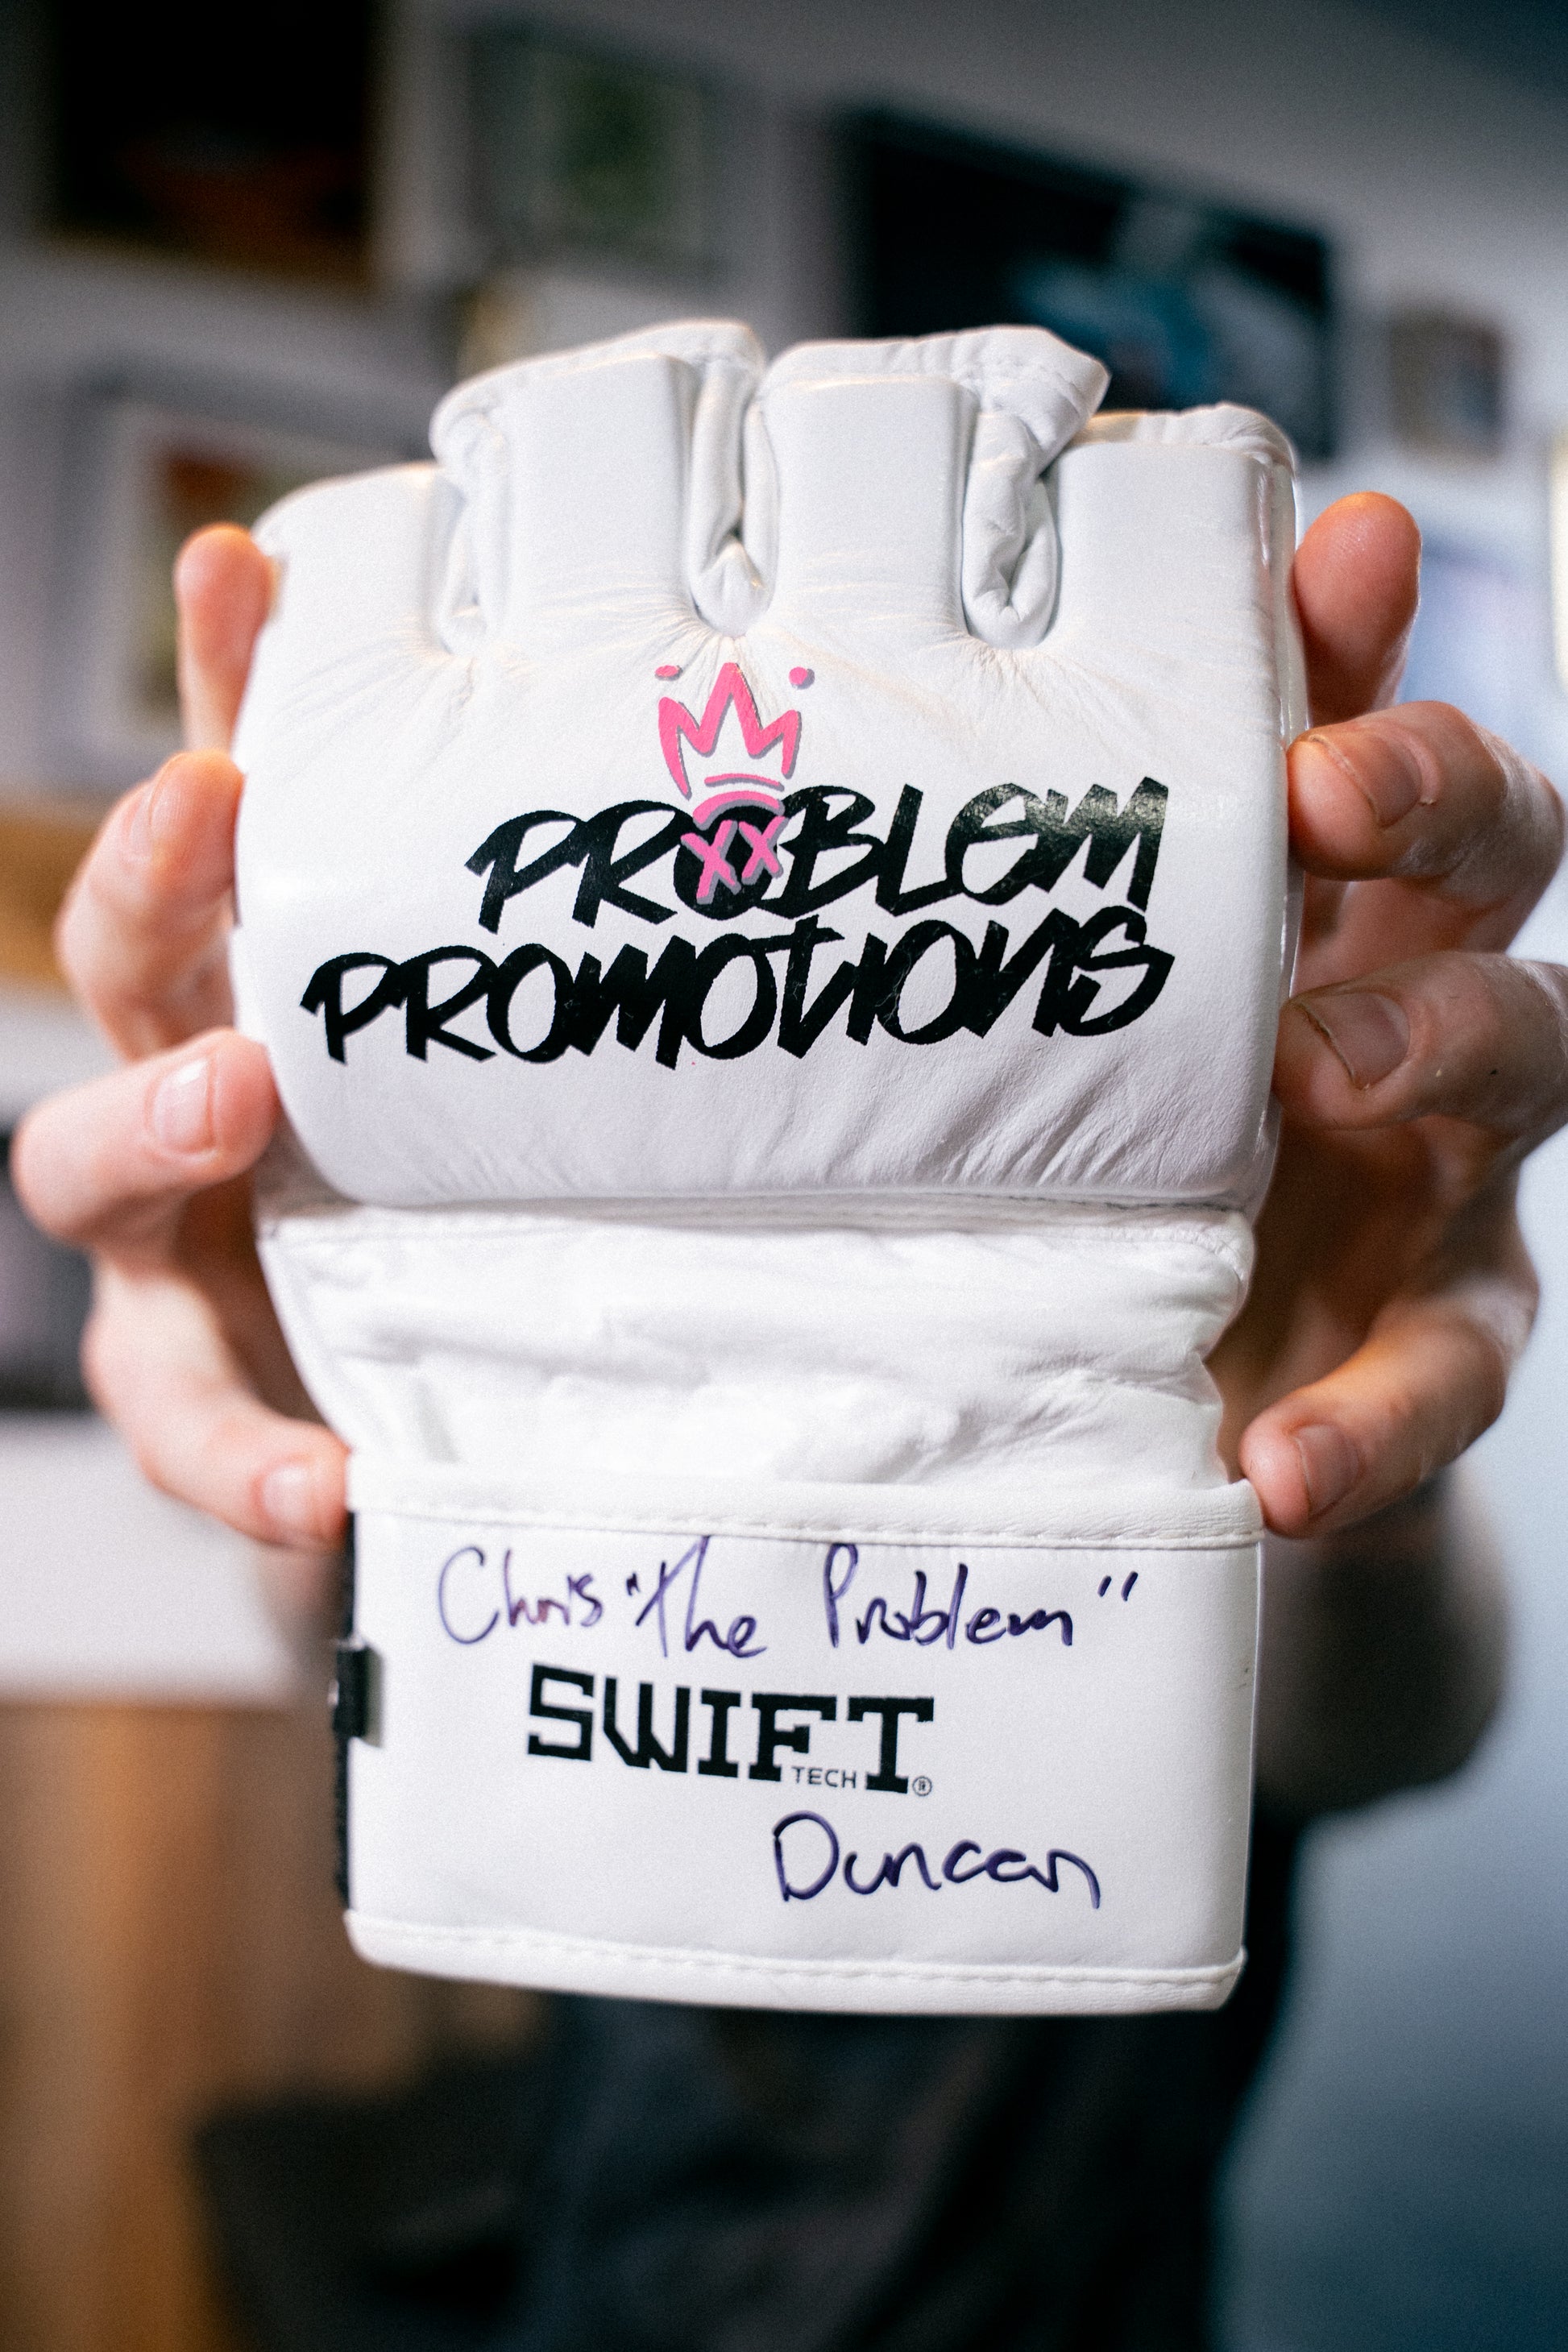 XX
PROBLEM
PROMOTIONS
Chris "The Problem"
SWIFT
TECH®
Duncan